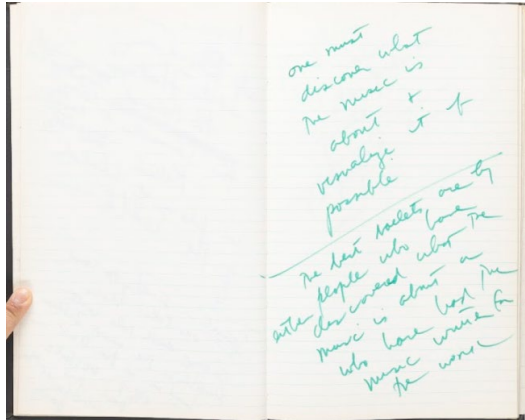 one must
discover what
the music is
about &
visualize it if
possible
The best ballets are by
people who have
either discovered what the
music is about or
who have had the
music written for
the work